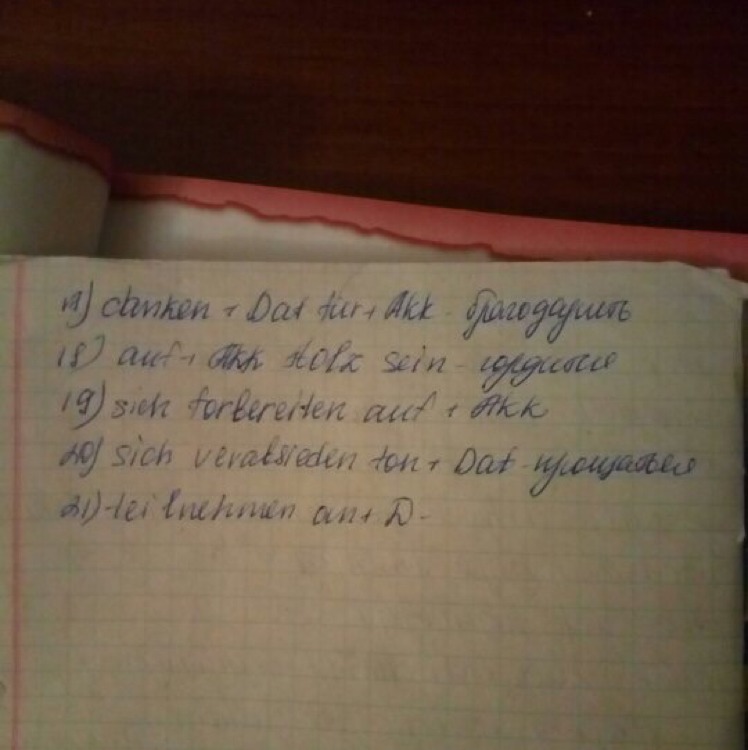 17) danken + Dat für + Akk - благодарить
18) auf + Akk stolz sein - гордиться
19) sich forbereiten auf + Akk
20) sich verabsieden von + Dat - прощаться
21) teilnehmen an + D -